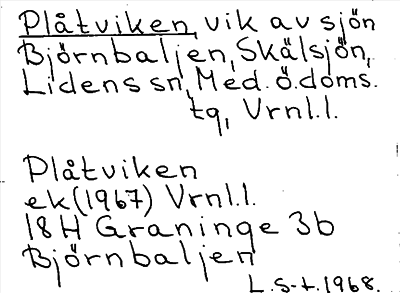 Plåtviken, vik av sjön
Björnbaljen, Skälsjön,
Lidens sn, Med. ö. doms.
tq, Vrnl.l.
Plåtviken
ek (1967) Vrnl.l.
18H Graninge 3b
Björnbaljen
L.S-t. 1968.